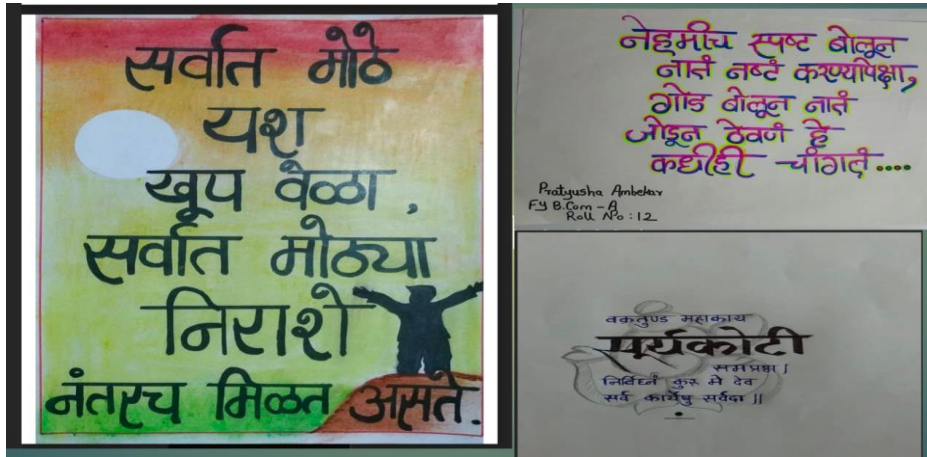 सर्वात मोठे
यश
खूप वेळा,
सर्वात मोठ्या
निराशे
नंतरच मिळत असते.
नेहमीच स्पष्ट बोलून
नातं नष्टं करण्यापेक्षा,
गोड बोलून नातं
जोडून ठेवणं हे
कधीही चांगलं....
Pratyusha Ambekar
FY B.Com - A
Roll No : 12
वक्रतुण्ड महाकाय
सूर्यकोटी
समप्रभ।
निर्विघ्नं कुरु मे देव
सर्व कार्येषु सर्वदा॥